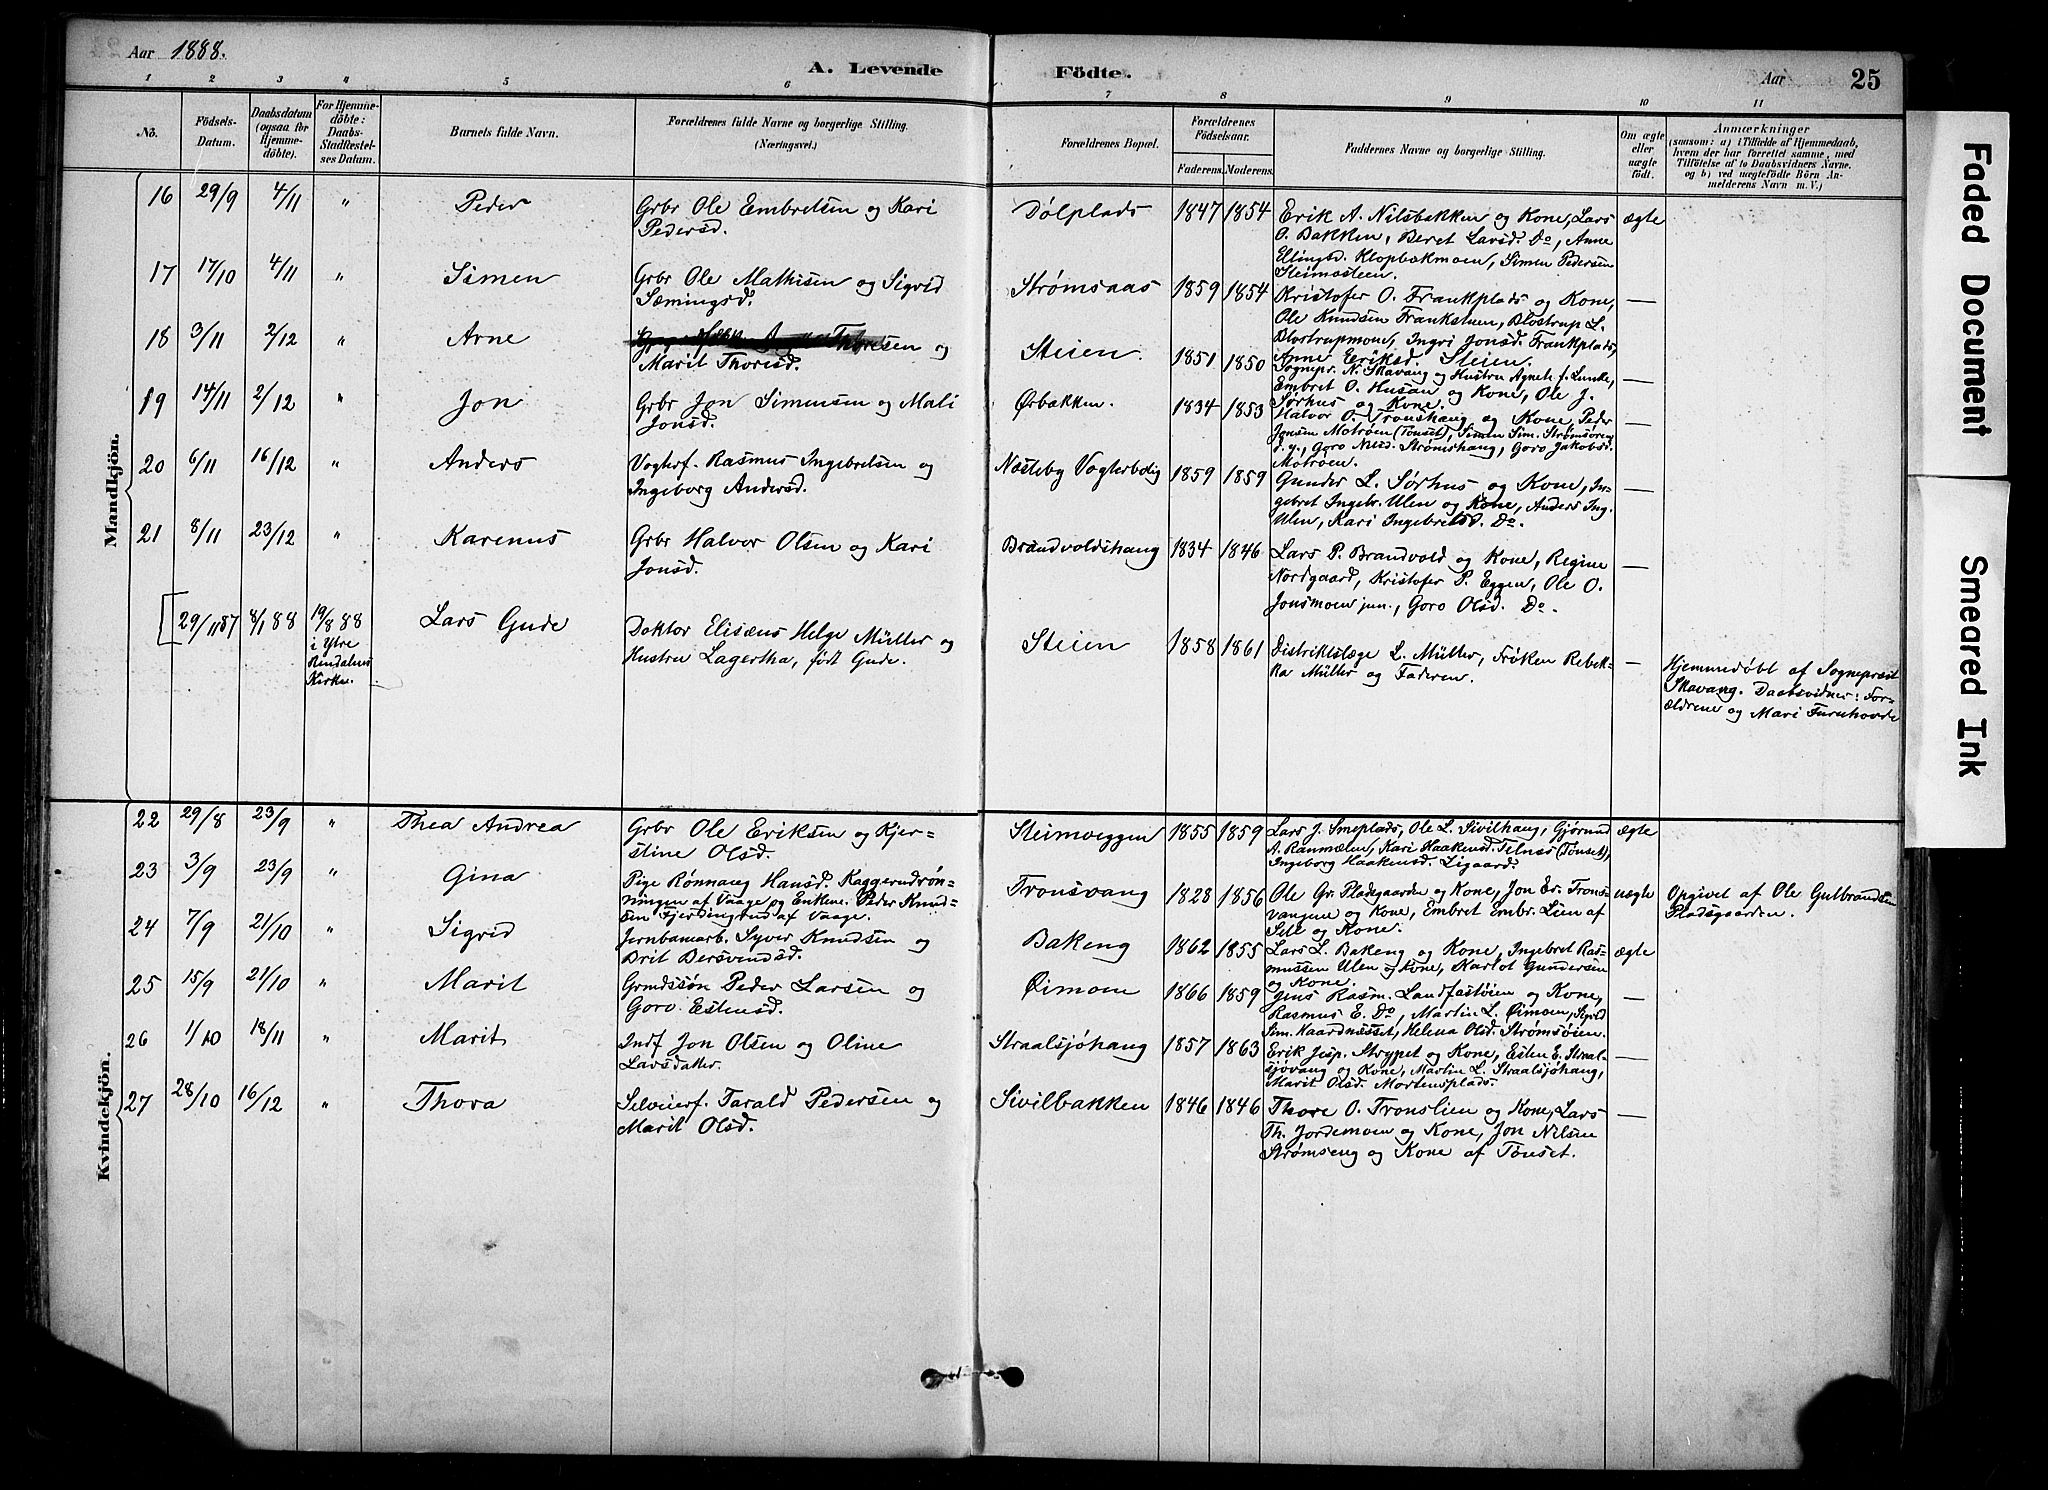 Aar 1888.
A. Levende Födte.
Aar 25
1 2 3 4 5 6 7 8 9 10 11
No. Födsels-Datum. Daabsdatum (ogsaa for Hjemmedöbte). For Hjemmedöbte: Daabs-Stadfæstelses Datum. Barnets fulde Navn. Forældrenes fulde Navne og borgerlige Stilling. (Næringsvei.) Forældrenes Bopæl. Forældrenes Födselsaar. Faderens. Moderens. Faddernes Navne og borgerlige Stilling. Om ægte eller uægte födt. Anmærkninger (saasom: a) i Tilfælde af Hjemmedaab, hvem der har forrettet samme, med Tilföielse af to Daabsvidners Navne. og b) ved uægtefödte Börn Anmelderens Navn m. V.)
Mandkjön.
16 29/9 4/11 " Peder Grbr Ole Embretsen og Kari Pedersd. Dølplads 1847 1854 Erik A. Nilsbakken og Kone, Lars O. Bakken, Beret Larsd. Do, Anne Ellingsd. Klopbakmoen, Simen Pedersen Steimosteen. ægte
17 17/10 4/11 " Simen Grbr Ole Mathisen og Sigrid Sæmingsd. Strømsaas 1859 1854 Kristofer O. Frankplads og Kone, Ole Knudsen Frankstuen, Blostrup L. Blostrupmoen, Ingri Jonsd. Frankplads, Anne Eriksd. Steien. —
18 3/11 2/12 " Arne Thoresen og Marit Thoresd. Steien. 1851 1850 Sognepr. N. Skavang og Hustru Agnete f. Lunde, Embret O. Husan og Kone, Ole J. Sørhus og Kone. —
19 14/11 2/12 " Jon Grbr Jon Simensen og Mali Jonsd. Ørbakken. 1834 1853 Halvor O. Tronshaug og Kone, Peder Jonsen Motrøen (Tönset), Simen Sim. Strømsøren d. y., Goro Nilsd. Strømshaug, Goro Jakobsd. Motrøen. —
20 6/11 16/12 " Anders Vogterf. Rasmus Ingebretsen og Ingeborg Andersd. Næsteby Vogterbolig 1859 1859 Gunder L. Sørhus og Kone, Ingebret Ingebr. Ulen og Kone, Anders Ing. Ulen, Kari Ingebretsd. Do. —
21 8/11 23/12 " Karenus Grbr Halvor Olsen og Kari Jonsd. Brandvoldshaug 1834 1846 Lars P. Brandvold og Kone, Regine Nordgaard, Kristofer P. Eggen, Ole O. Jonsmoen jun., Goro Olsd. Do. —
29/11 87 4/1 88 19/8 88 i Ytre Rendalens Kirke. Lars Gude Doktor Elisæus Helge Müller og Hustru Lagertha, født Gude. Steien 1858 1861 Distriktslæge L. Müller, Frøken Rebekka Müller og Faderen. — Hjemmedøbt af Sogneprest Skavang. Daabsvidner: Forældrene og Mari Furuhovde
Kvindekjön.
22 29/8 23/9 " Thea Andrea Grbr Ole Eriksen og Kjerstine Olsd. Steimoeggen 1855 1859 Lars J. Smeplads, Ole L. Sivilhaug, Gjørund A. Ranmælen, Kari Haakensd. Telnes (Tönset), Ingeborg Haakensd. Ligaard. ægte
23 3/9 23/9 " Gina Pige Rønnaug Hansd. Kaggerudrønningen af Vaage og Enkem. Peder Knudsen Fjerdingrud af Vaage. Tronsvang 1828 1856 Ole Gr. Pladsgaarden og Kone, Jon Er. Tronsvangene og Kone, Embret Embr. Lien af Sele og Kone. uægte Opgivet af Ole Gulbrandsen Pladsgaarden.
24 7/9 21/10 " Sigrid Jernbanearb. Syver Knudsen og Brit Bersvendsd. Bakeng 1862 1855 Lars L. Bakeng og Kone, Ingebret Rasmussen Ulen og Kone, Karlot Gundersen og Kone. ægte
25 15/9 21/10 " Marit Grmdssøn Peder Larsen og Goro Estensd. Øimoen 1866 1859 Jens Rasm. Landfastøien og Kone, Rasmus E. Do, Martin L. Øimoen, Sigrid Sim. Haardnæsset, Helena Olsd. Strømsøien. —
26 1/10 18/11 " Marit Indf Jon Olsen og Oline Larsdatter. Straalsjøhaug 1857 1863 Erik Jesp. Strypet og Kone, Esten E. Straalsjøvang og Kone, Martin L. Straalsjøhaug, Marit Olsd. Mortensplads. —
27 28/10 16/12 " Thora Selveierf. Tarald Pedersen og Marit Olsd. Sivilbakken 1846 1846 Thore O. Tronslien og Kone, Lars Th. Jordemoen og Kone, Jon Nilsen Strømseng og Kone af Tönset. —
Faded Document
Smeared Ink